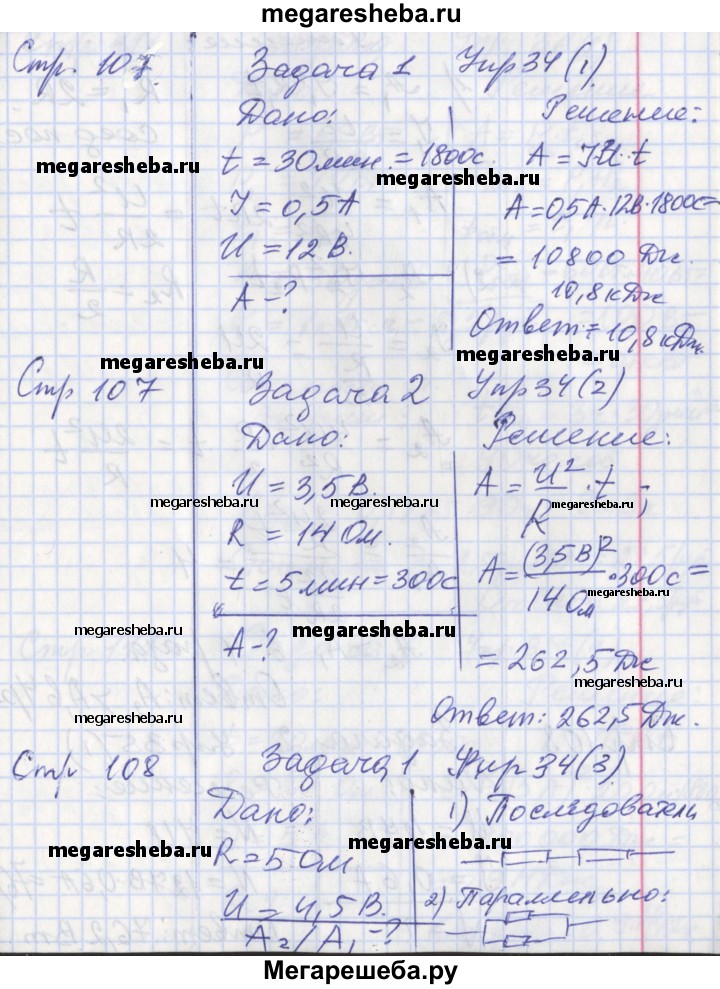 megaresheba.ru
Стр. 107 Задача 1 Упр 34(1)
Дано: Решение:
megaresheba.ru
t = 30 мин. = 1800с. A = IU·t
megaresheba.ru
I = 0,5 А A = 0,5А·12В·1800с =
U = 12 В. = 10800 Дж.
10,8 кДж
A - ? Ответ: = 10,8 кДж.
megaresheba.ru
megaresheba.ru
Стр 107 Задача 2 Упр 34(2)
Дано: Решение:
U = 3,5 В. A = U²/R · t ;
megaresheba.ru
megaresheba.ru
R = 14 Ом.
t = 5 мин = 300с A = (3,5В)²/14 Ом · 300с =
megaresheba.ru
megaresheba.ru
megaresheba.ru
A - ? = 262,5 Дж
megaresheba.ru
megaresheba.ru
Ответ: 262,5 Дж.
Стр 108 Задача 1 Упр 34(3)
Дано: 1) Последователи
megaresheba.ru
megaresheba.ru
R = 5 Ом
U = 4,5 В. 2) Параллельно:
A₂/A₁ - ?
megaresheba.ru
megaresheba.ru
Мегарешеба.ру